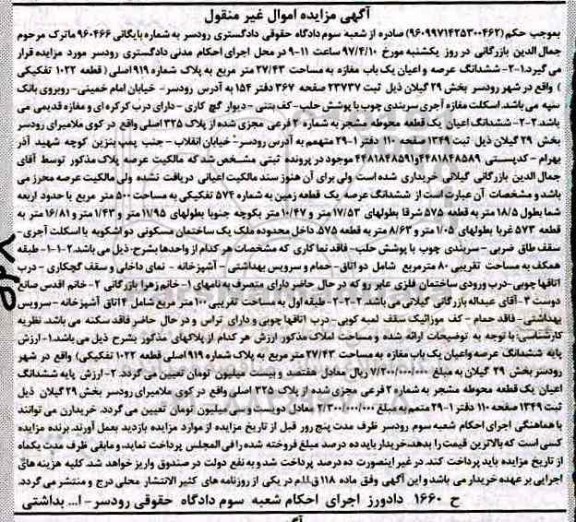 آگهی مزایده اموال غیر منقول
بموجب حکم (۹۶۰۹۹۷۱۴۲۵۳۰۰۴۶۲) صادره از شعبه سوم دادگاه حقوقی دادگستری رودسر به شماره بایگانی ۹۶۰۴۶۶ ماترک مرحوم
جمال الدین بازرگانی در روز یکشنبه مورخ ۹۷/۴/۱۰ ساعت ۱۱-۹ در محل اجرای احکام مدنی دادگستری رودسر مورد مزایده قرار
می گیرد.۱-۲- ششدانگ عرصه و اعیان یک باب مغازه به مساحت ۲۷/۴۳ متر مربع به پلاک شماره ۹۱۹ اصلی ( قطعه ۱۰۲۲ تفکیکی
) واقع در شهر رودسر بخش ۲۹ گیلان ذیل ثبت ۲۳۷۳۷ صفحه ۳۶۷ دفتر ۱۵۴ به آدرس رودسر- خیابان امام خمینی- روبروی بانک
سپه می باشد. اسکلت مغازه آجری سربندی چوب با پوشش حلب- کف بتنی - دیوار گچ کاری - دارای درب کرکره ای و مغازه قدیمی می
باشد.۲-۲- ششدانگ اعیان یک قطعه محوطه مشجر به شماره ۲ فرعی مجزی شده از پلاک ۳۲۵ اصلی واقع در کوی ملامیرای رودسر
بخش ۲۹ گیلان ذیل ثبت ۱۳۴۹ صفحه ۱۱۰ دفتر ۱-۲۹ متمم به آدرس رودسر- خیابان انقلاب - جنب پمپ بنزین کوچه شهید آذر
بهرام - کدپستی ۴۴۸۱۸۴۸۵۸۹و۴۴۸۱۸۴۸۵۹۱ موجود در پرونده ثبتی مشخص شد که مالکیت عرصه پلاک مذکور توسط آقای
جمال الدین بازرگانی گیلانی خریداری شده است ولی برای آن هنوز سند مالکیت اعیانی دریافت نشده ولی مالکیت عرصه محرز می
باشد و مشخصات آن عبارت است از ششدانگ عرصه یک قطعه زمین به شماره ۵۷۴ تفکیکی به مساحت ۵۰۰ متر مربع با حدود اربعه
شما بطول ۱۸/۵ متر به قطعه ۵۷۵ شرقا بطولهای ۱۷/۵۳ متر و ۱۰/۴۷ متر بکوچه جنوبا بطولهای ۱۱/۹۵ متر و ۱/۴۳ متر و ۱۶/۸۱ متر به
قطعه ۵۷۳ غربا بطولهای ۱/۰۵ متر و ۸/۶۳ متر به قطعه ۵۷۵. داخل محدوده ملک یک ساختمان مسکونی دو اشکوبه با اسکلت آجری-
سقف طاق ضربی - سربندی چوب با پوشش حلب- فاقد نما کاری که مشخصات هر کدام از واحدها بشرح ذیل می باشد.۲-۱-۱- طبقه
همکف به مساحت تقریبی ۸۰ مترمربع شامل دو اتاق- حمام و سرویس بهداشتی - آشپزخانه - نمای داخلی و سقف گچکاری - درب
اتاقها چوبی- درب ورودی ساختمان فلزی عابر رو که در حال حاضر دارای متصرف به نامهای ۱- خانم زهرا بازرگانی ۲- خانم اقدس صانع
دوست ۳- آقای عبداله بازرگانی گیلانی می باشد. ۲-۲-۲- طبقه اول به مساحت تقریبی ۱۰۰ متر مربع شامل ۴ اتاق آشپزخانه - سرویس
بهداشتی- فاقد حمام - کف موزائیک سقف لمبه کوبی- درب اتاقها چوبی و دارای تراس و در حال حاضر فاقد سکنه می باشد. نظریه
کارشناسی: با توجه به توضیحات ارائه شده و مساحت املاک مذکور ارزش هر کدام از پلاکهای مذکور بشرح ذیل می باشد: ۱- ارزش
پایه ششدانگ عرصه واعیان یک باب مغازه به مساحت ۲۷/۴۳ متر مربع به پلاک شماره ۹۱۹ اصلی قطعه ۱۰۲۲ تفکیکی) واقع در شهر
رودسر بخش ۲۹ گیلان به مبلغ ۷/۲۰۰/۰۰۰/۰۰۰ ریال معادل هفتصد و بیست میلیون تومان تعیین می گردد. ۲- ارزش پایه ششدانگ
اعیان یک قطعه محوطه مشجر به شماره ۲ فرعی مجزی شده از پلاک ۳۲۵ اصلی واقع در کوی ملامیرای رودسر بخش ۲۹ گیلان ذیل
ثبت ۱۳۴۹ صفحه ۱۱۰ دفتر ۱-۲۹ متمم به مبلغ ۲/۳۰۰/۰۰۰/۰۰۰ معادل دویست و سی میلیون تومان تعیین می گردد. خریدارن می توانند
با هماهنگی اجرای احکام شعبه سوم رودسر ظرف مدت پنج روز قبل از تاریخ مزایده از موارد مزایده بازدید بعمل آورند. برنده مزایده
کسی است که بالاترین قیمت را بدهد، خریدار باید ده درصد مبلغ فروخته شده را فی المجلس پرداخت نماید، و مابقی ظرف مدت یکماه
از تاریخ مزایده باید پرداخت کند. در غیر اینصورت ده درصد پرداخت شد و به نفع دولت در صندوق واریز خواهد شد. کلیه هزینه های
اجرایی بر عهده خریدار می باشد و این آگهی وفق ماده ۱۱۸ ق.ا.م در یکی از روزنامه های کثیر الانتشار محلی درج و منتشر می گردد.
ح ۱۶۶۰ دادورز اجرای احکام شعبه سوم دادگاه حقوقی رودسر- ا... بداشتی